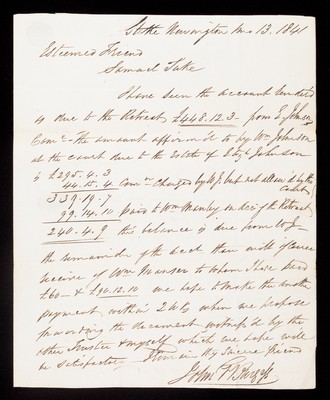 Stoke Newington 13. 1841
Esteemed Friend
Samuel Tuke
I have seen the account rendered
is due to the Retreat £448.12.3 from E. Johnson
the amount affirm'd to by Wm Johnson
at the court due to the Estate of Eliz Johnson
is £295.4.3
44.15.4 Comn charged by W J. but not allow'd by the
Court
339.19.7
99.14.10 paid to Wm Manser in acct of the Retreat
240.4.9 this balance is due from W J
the remainder of the debt thou will please
receive of Wm Manser to whom I have paid
£60 & £90.12.10 we hope to make the another
payment within 2 when we propose
forwarding the document witness'd by the
other Trustee & myself which we hope will
be satisfactory I remain thy sincere friend
John